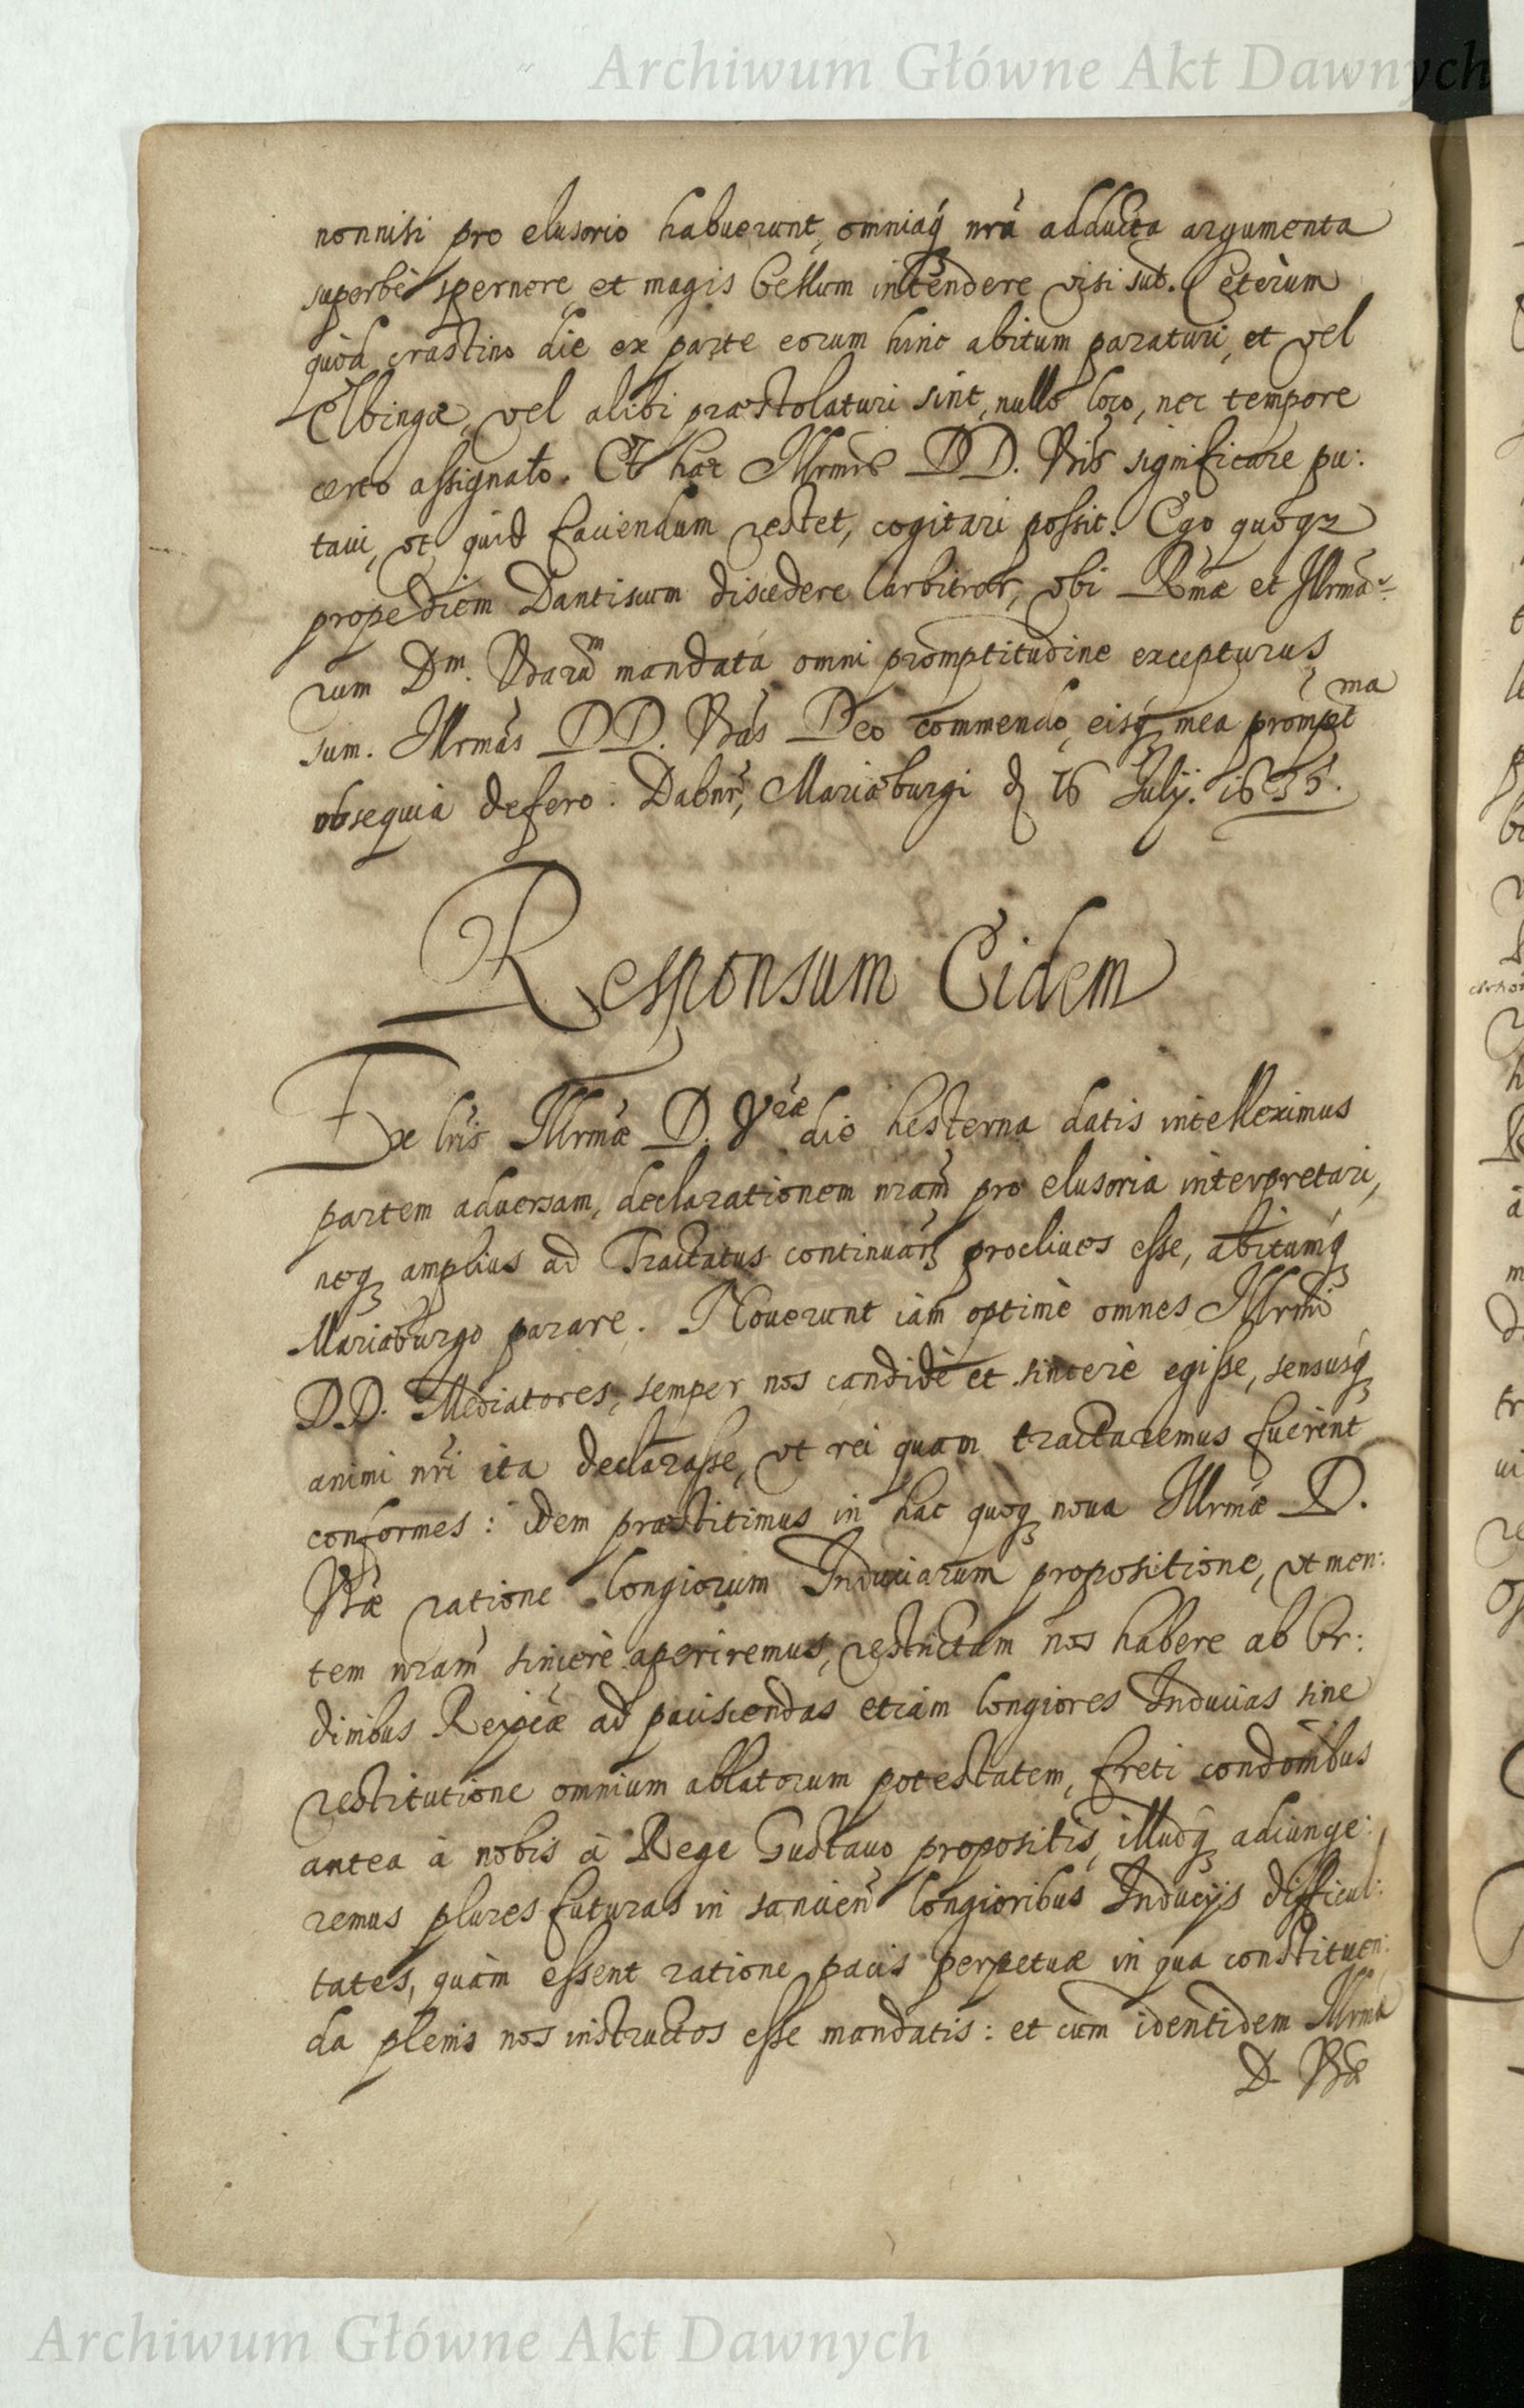 Archiwum Główne Akt Dawnych
nonnisi pro elusorio habuerunt, omniaq́ nra adducta argumenta
superbè spernere, et magis bellum intendere visi sut. Ceterum
quòd crastino die ex parte eorum hinc abitum paraturi, et vel
Elbingæ, vel alibi præstolaturi sint, nullo loco, nec tempore
certo assignato. Et hæc Illrmis DD. Vris significare pu:
taui, ut quid faciendum restet, cogitari possit. Ego quoqz
propediem Dantiscum discedere arbitror, ubi Rmæ et Illrma-
rum Dm. Vrarum mandata omni promptitudine excepturus
sum. Illrmas DD. Vras Deo commendo, eisq mea promptma
obsequia defero. Dabnr, Mariæburgi d 16 Julij. 1635.
Responsum Eidem
Ex lris Illrmæ D. Vræ die hesterna datis intelleximus
partem aduersam, declarationem nram pro elusoria interpretari,
neq amplius ad Tractatus continuan procliues esse, abitumq́
Mariæburgo parare. Nouerunt iam optimè omnes Illrmi
DD. Mediatores, semper nos candidè et sincerè egisse, sensusq́
animi nri ita declarasse, ut rei quam tractaremus fuerint
conformes: idem præstitimus in hac quoq noua Illrmæ D.
Vræ ratione longiorum Induciarum propositione, ut men:
tem nram sincerè aperiremus, restrictam nos habere ab Or:
dinibus Reipcæ ad paciscendas etiam longiores Inducias sine
restitutione omnium ablatorum potestatem, freti condonibus
antea à nobis à Rege Gustauo propositis, illudq adiunge:
remus plures futuras in sancien longioribus Inducijs difficul:
tates, quàm essent ratione pacis perpetuæ in qua constituen:
da plenis nos instructos esse mandatis: et cum identidem Illrma
D. Vra
Archiwum Główne Akt Dawnych